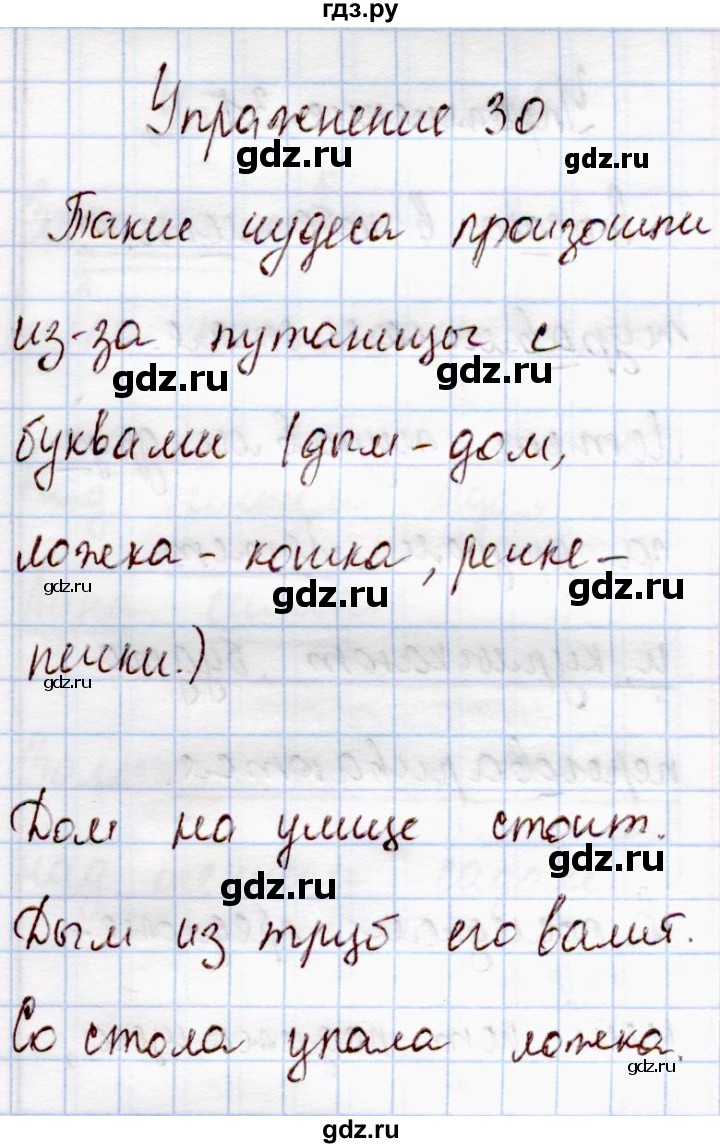 гдз.ру
Упражнение 30
gdz.ru
gdz.ru
Такие чудеса произошли
gdz.ru
gdz.ru
из-за путаницы с
gdz.ru
gdz.ru
буквами (дым - дом,
ложка - кошка, речке -
gdz.ru
gdz.ru
gdz.ru
печки.)
gdz.ru
Дом на улице стоит.
gdz.ru
gdz.ru
Дым из труб его валит.
gdz.ru
Со стола упала ложка.
gdz.ru
gdz.ru
gdz.ru